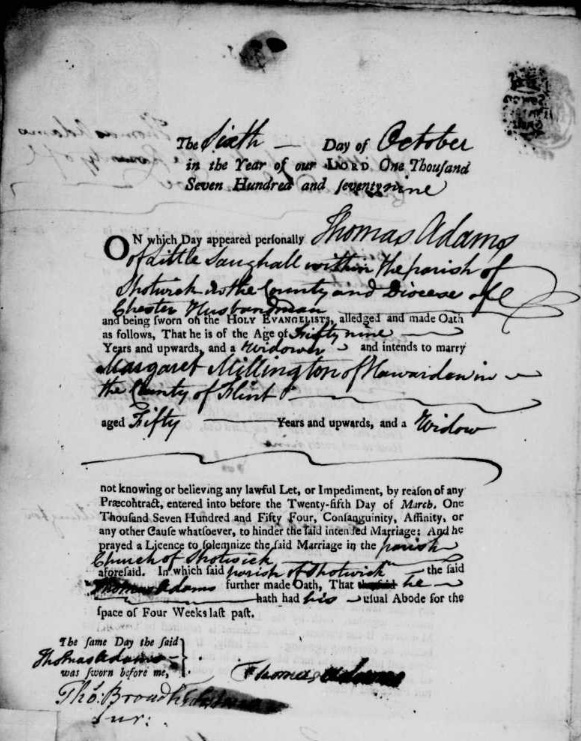 The Sixth — Day of October
in the Year of our LORD One Thousand
Seven Hundred and seventy nine
ON which Day appeared personally Thomas Adams
of Little Saughall within the parish of
Shotwick in the County and Diocese of
Chester Husbandman
and being sworn on the HOLY EVANGELISTS, alledged and made Oath
as follows, That he is of the Age of fifty nine
Years and upwards, and a Widower and intends to marry
Margaret Millington of Hawarden in
the County of Flint
aged Fifty Years and upwards, and a Widow
not knowing or believing any lawful Let, or Impediment, by reason of any
Præcontract, entered into before the Twenty-fifth Day of March, One
Thousand Seven Hundred and Fifty Four, Consanguinity, Affinity, or
any other Cause whatsoever, to hinder the said intended Marriage: And he
prayed a Licence to solemnize the said Marriage in the parish
Church of Shotwick
aforesaid. In which said parish of Shotwick — the said
Thomas Adams further made Oath, That he —
hath had his usual Abode for the
space of Four Weeks last past.
The same Day the said
Thomas Adams
was sworn before me,
Thomas Adams
Tho.
Sur: